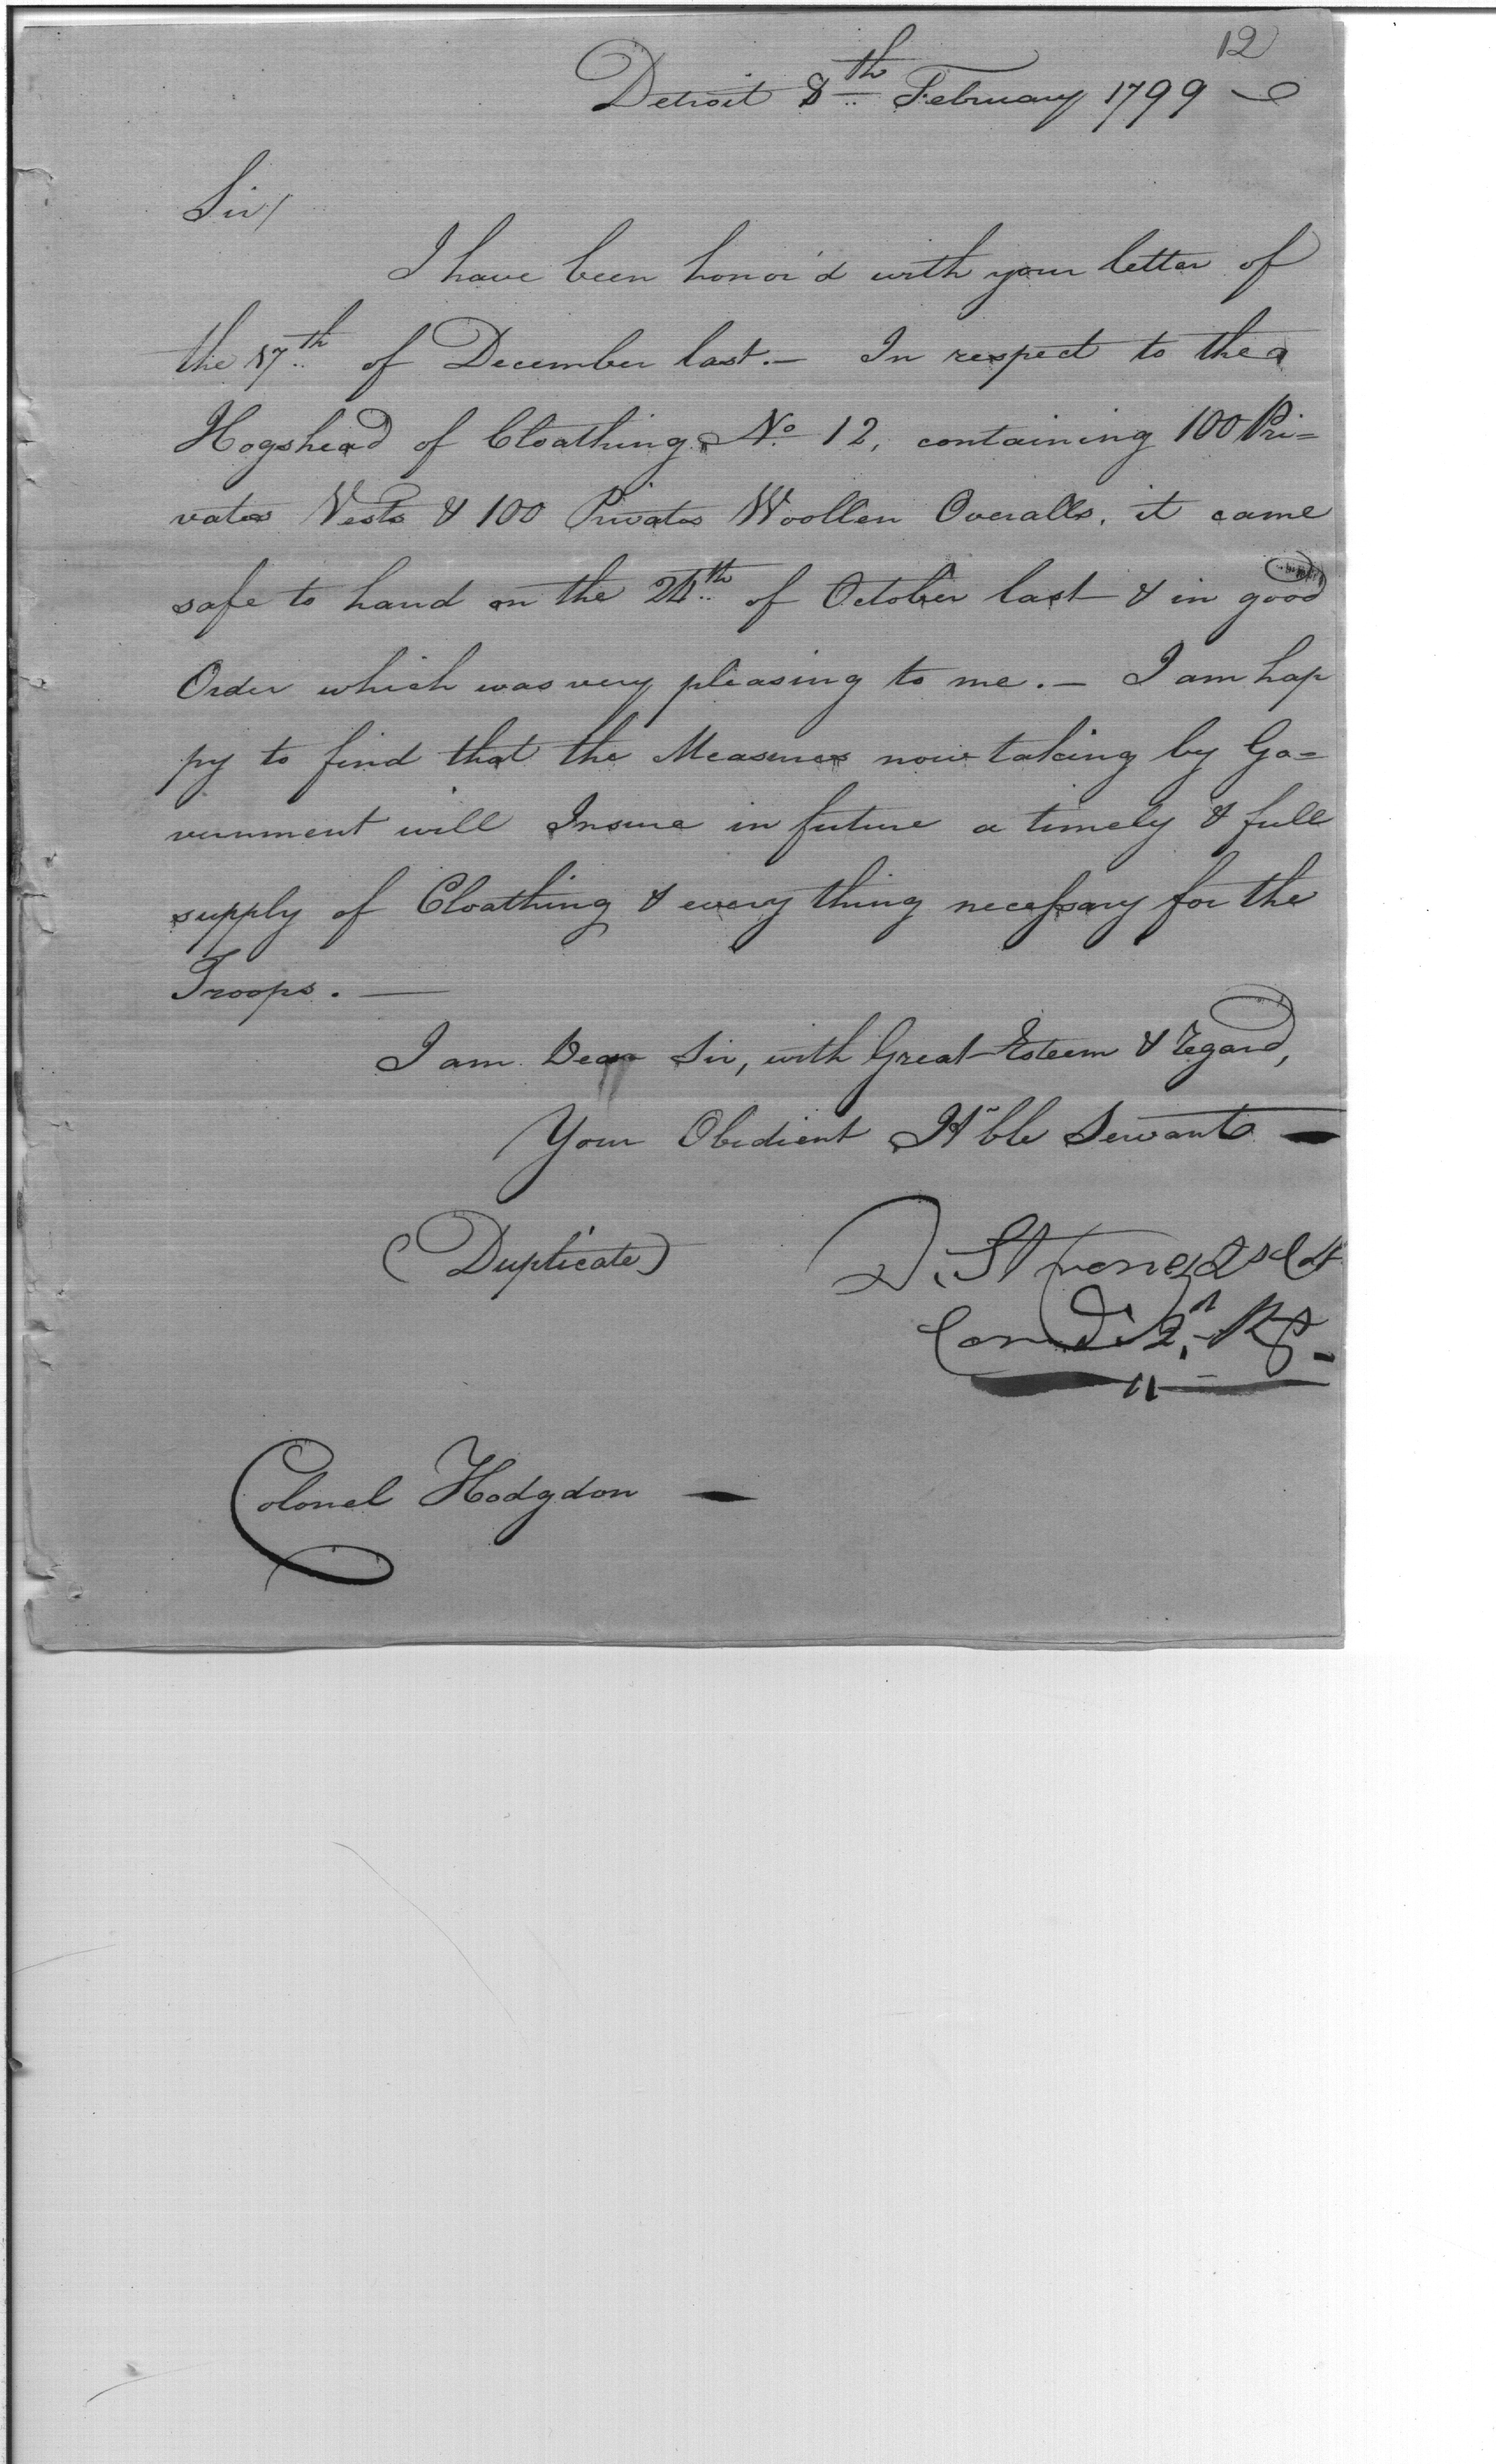 12
Detroit 8th February 1799
Sir/
I have been honor'd with your letter of
the 17th of December last.— In respect to the
Hogshead of Cloathing No 12, containing 100 Pri=
vates Vests & 100 Privates Woollen Overalls, it came
safe to hand on the 24th of October last & in good
Order which was very pleasing to me.— I am hap
py to find that the Measures now taking by Go=
vernment will Insure in future a timely & full
supply of Cloathing & every thing necessary for the
Troops.—
I am Dear Sir, with Great Esteem & regard,
Your Obedient H'ble Servant
(Duplicate)
D. Strong
2d
Colonel Hodgdon —